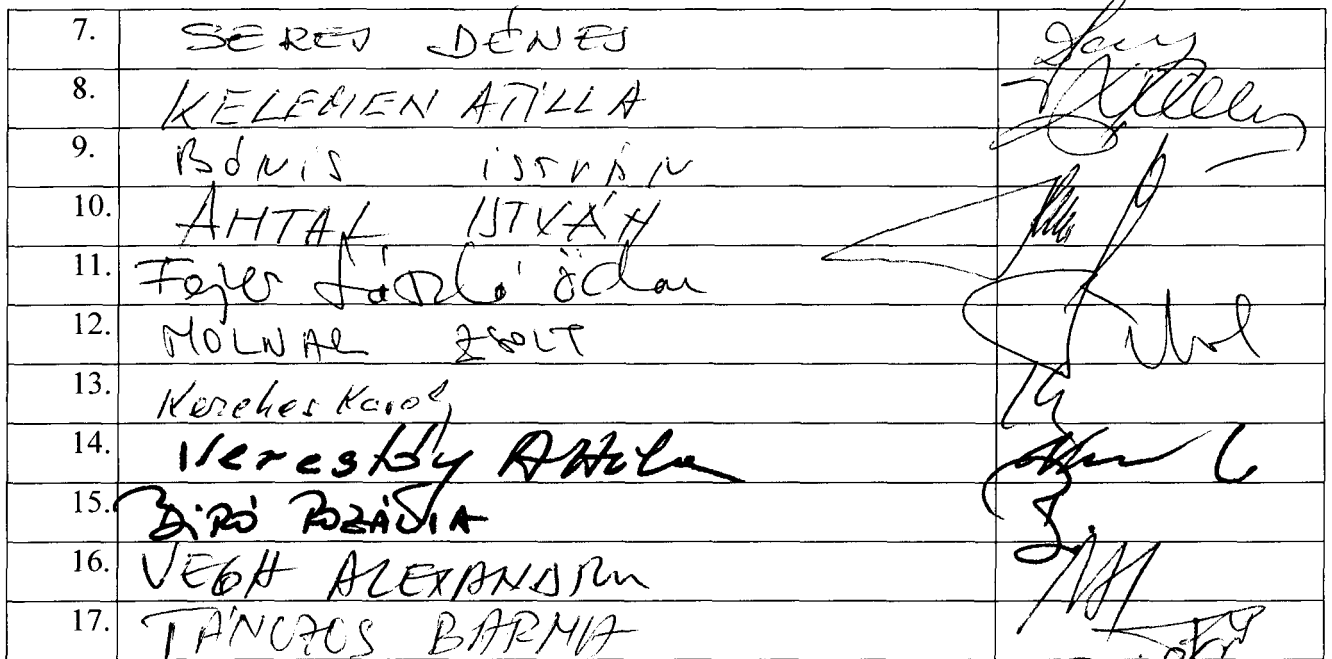 7. SERES DÉNES
8. KELEMEN ATILLA
9. BÓNIS ISTVÁN
10. ANTAL ISTVÁN
11. Fejér László Ödön
12. MOLNAR ZSOLT
13. Kerekes Karoly
14. Verestóy Attila
15. BIRÓ ROZÁLIA
16. VEGH ALEXANDRU
17. TÁNCZOS BARNA